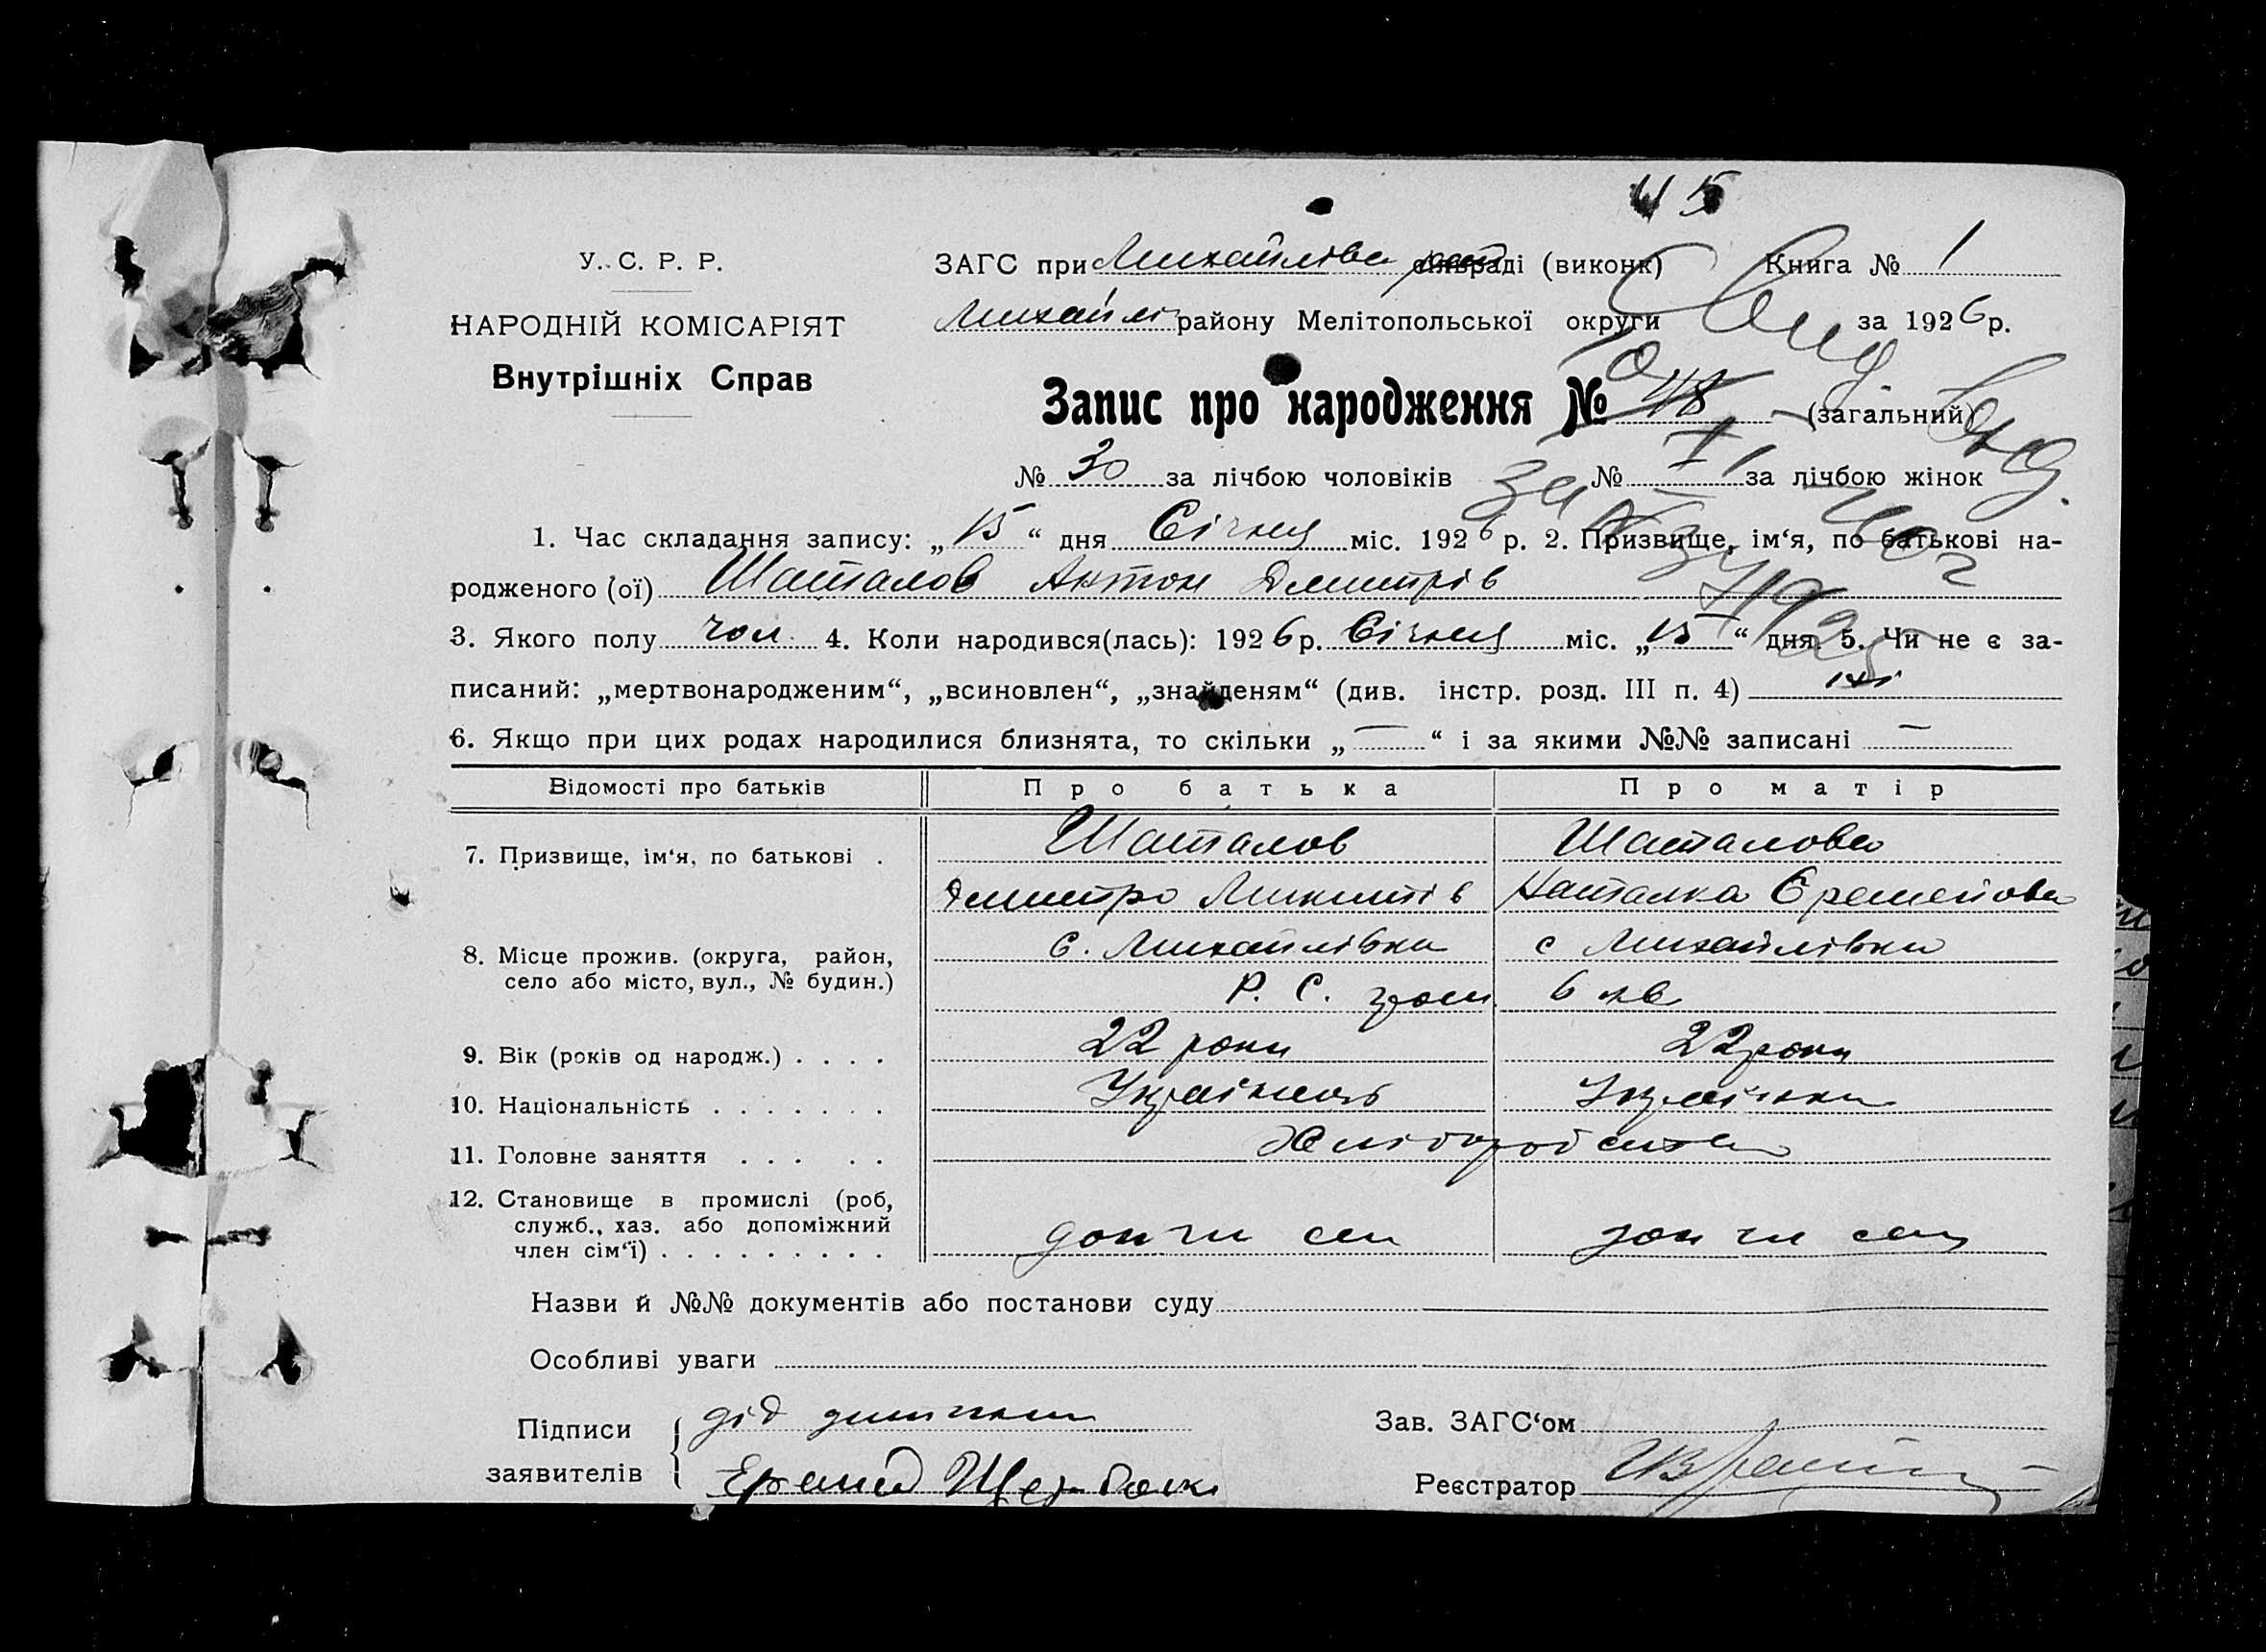 45
У. С. Р. Р.
НАРОДНІЙ КОМІСАРІЯТ
Внутрішніх Справ
ЗАГС при Михайлівс сільраді (виконк) Книга № 1
Михайлі району Мелітопольської округи за 1926 р.
Запис про народження № 48 (загальний)
№ 30 за лічбою чоловіків № за лічбою жінок
1. Час складання запису: „15“ дня Січня міс. 1926 р. 2. Призвище, ім‘я, по батькові на-
родженого (ої) Шаталов Антон Дмитрів
3. Якого полу чол. 4. Коли народився(лась): 1926 р. Січня міс. „15“ дня 5. Чи не є за-
писаний: „мертвонародженим“, „всиновлен“, „знайденям“ (див. інстр. розд. III п. 4) ні
6. Якщо при цих родах народилися близнята, то скільки „—“ і за якими №№ записані —
Відомості про батьків Про батька Про матір
7. Призвище, ім‘я, по батькові . Шаталов Шаталова
Дмитро Микитів Наталка Єремейова
8. Місце прожив. (округа, район, с. Михайлівка с Михайлівка
село або місто, вул., № будин.) Р. С. 6 кв
9. Вік (років од народж.) . . . . 22 роки 22 роки
10. Національність . . . . . . . Українець Українка
11. Головне заняття . . . . . Хлібороб
12. Становище в промислі (роб,
служб., хаз. або допоміжний
член сім‘ї) . . . . . . . . . доп чл сем доп чл сем
Назви й №№ документів або постанови суду
Особливі уваги
Підписи дід дитини Зав. ЗАГС‘ом
заявителів Реєстратор